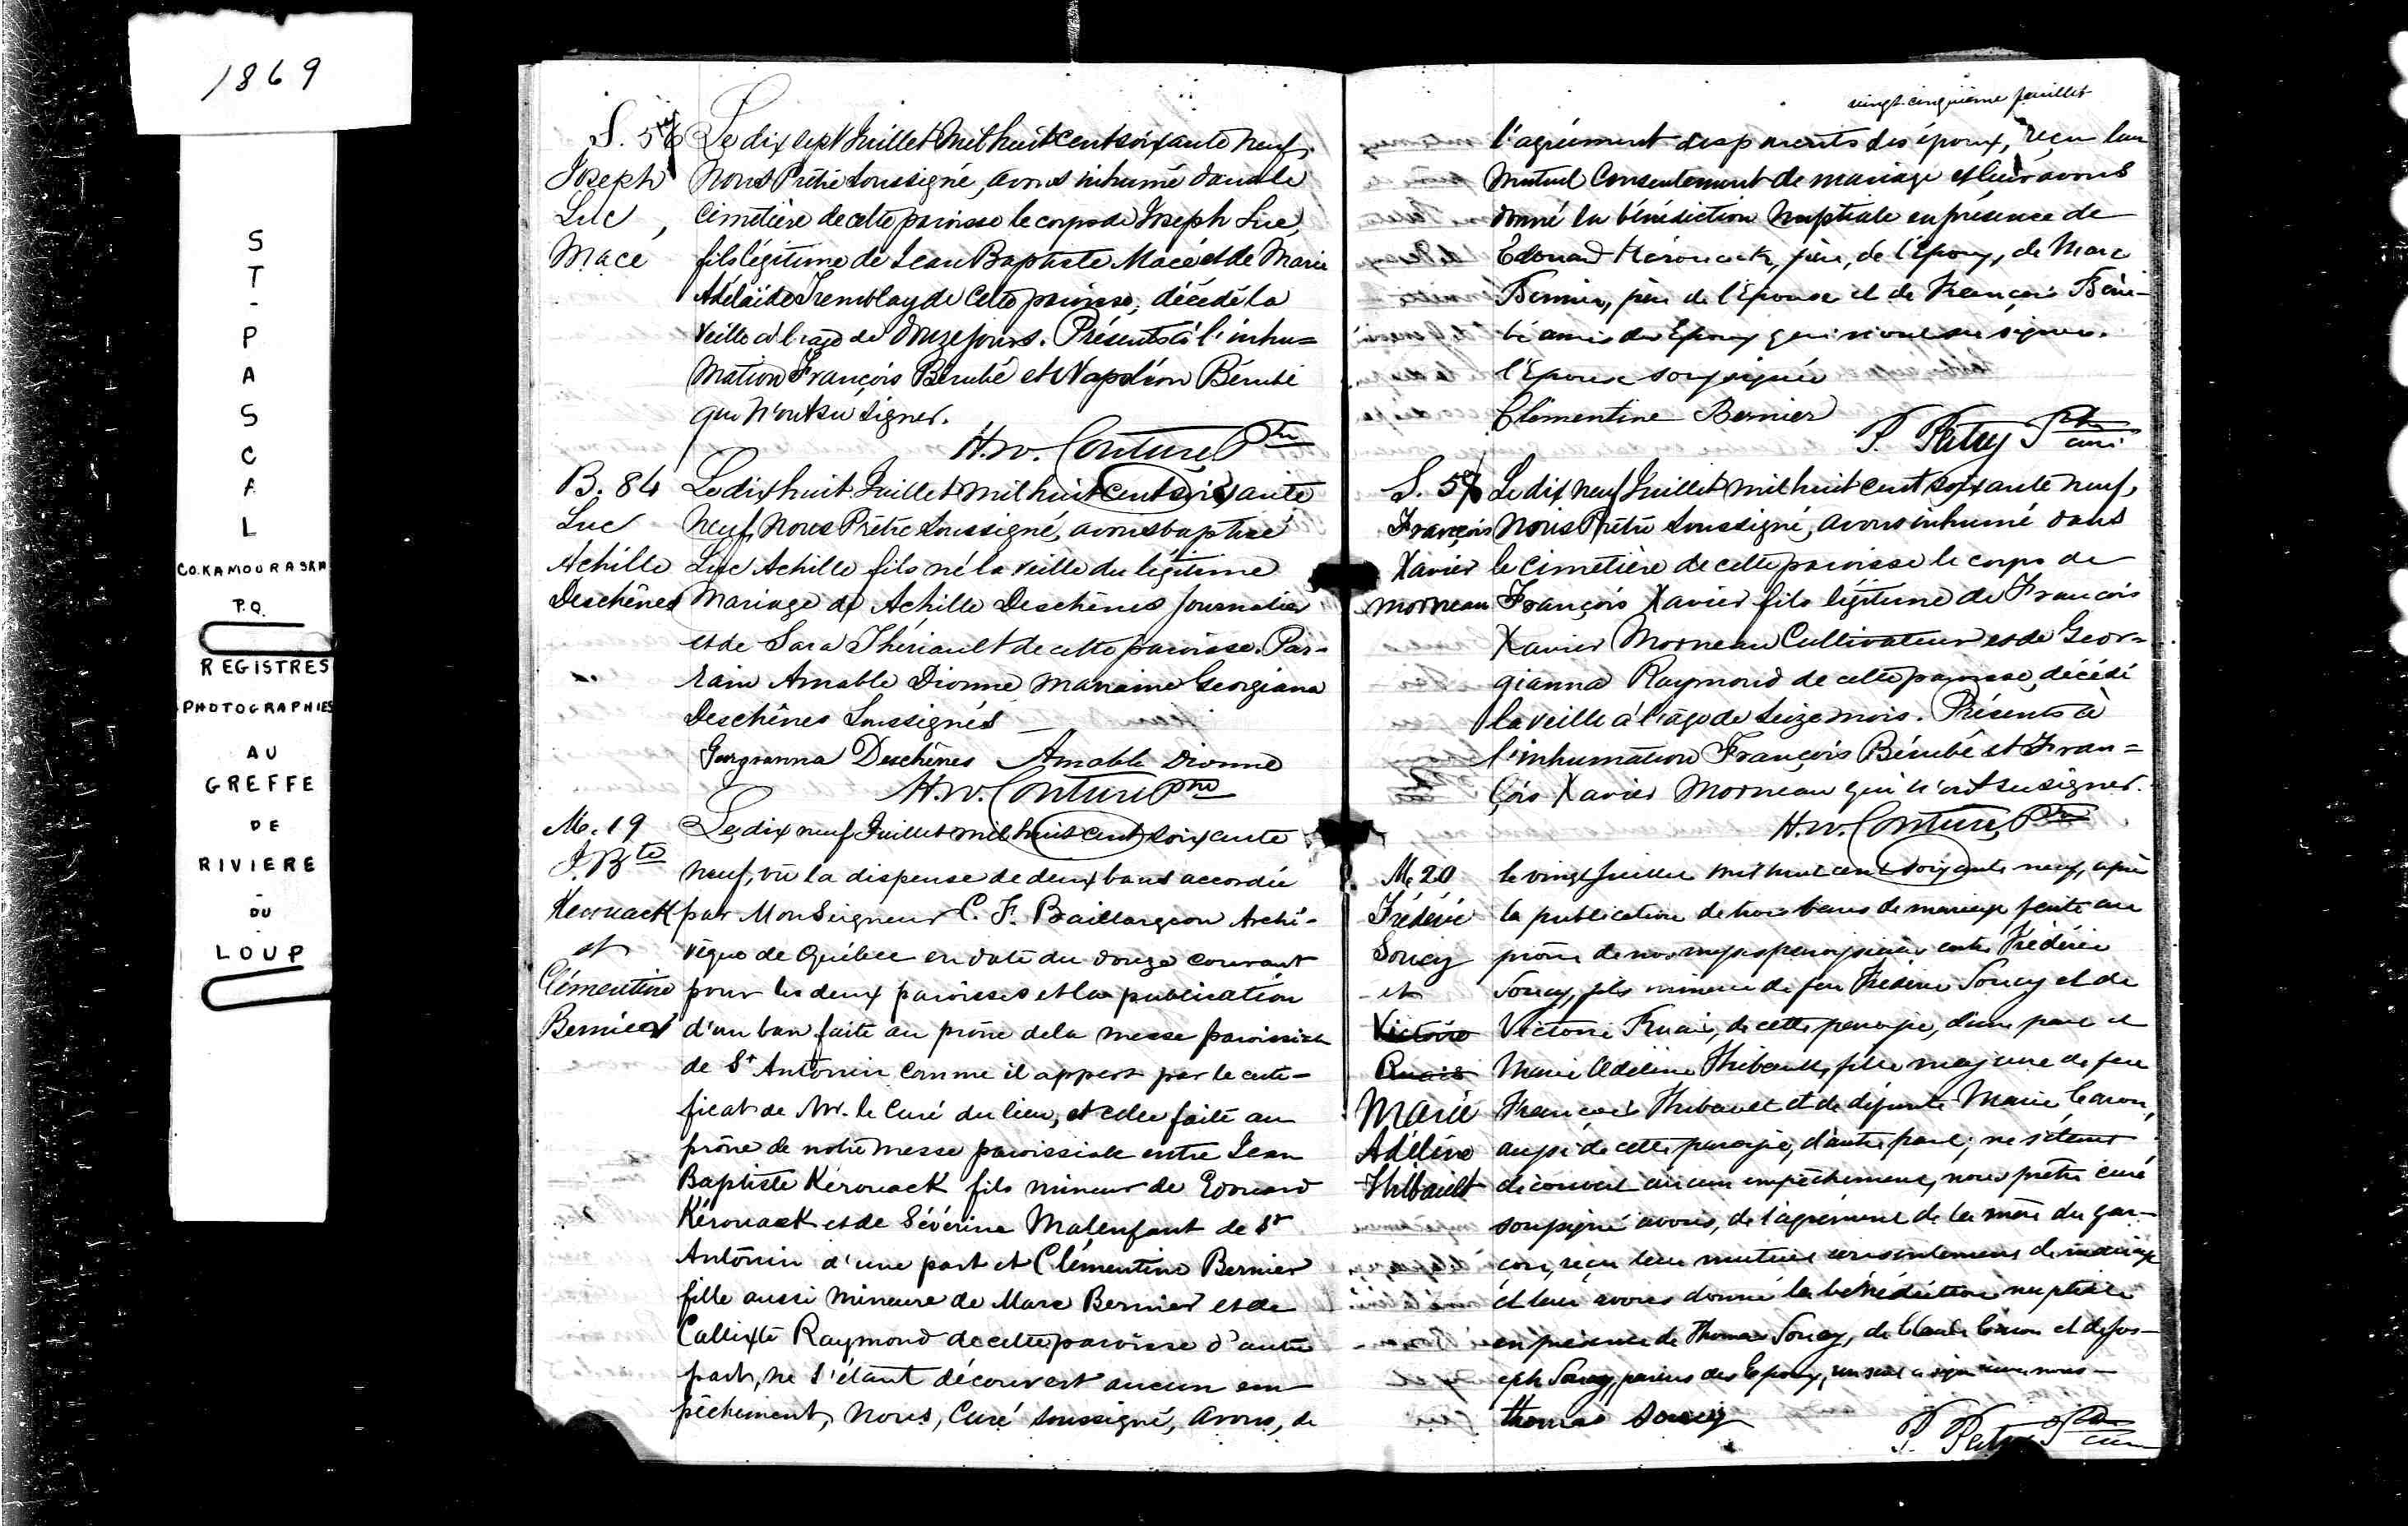 1869
ST-PASCAL
CO. KAMOURASKA
P.Q.
REGISTRES
PHOTOGRAPHIES
AU
GREFFE
DE
RIVIERE
-
DU
-
LOUP
S. 56
Joseph
Luc
Macé
Le dix sept Juillet mil huit cent soixante neuf,
Nous Prêtre soussigné, avons inhumé dans le
cimetière de cette paroisse le corps de Joseph Luc,
fils légitime de Jean Baptiste Macé et de Marie
Adélaïde Tremblay de cette paroisse, décédé la
veille à l'age de douze jours. Présents à l'inhu=
mation François Bérubé et Napoléon Bérubé
qui n'ont su signer.
H.W. Couture Ptre
B. 84
Luc
Achille
Deschênes
Le dix huit Juillet mil huit cent soixante
neuf, Nous Prêtre soussigné, avons baptisé
Luc Achille fils né la veille du légitime
mariage de Achille Deschênes Journalier
et de Sara Thériault de cette paroisse. Par-
rain Amable Dionne marraine Georgiana
Deschênes soussignés
Georgianna Deschênes Amable Dionne
H.W. Couture Ptre
M. 19
J. Bte
Kérouack
et
Clémentine
Bernier
Le dix neuf Juillet mil huit cent soixante
neuf, vu la dispense de deux bans accordée
par Monseigneur C. F. Baillargeon Arché-
vêque de Québec en date du douze courant
pour les deux paroisses et la publication
d'un ban faite au prône de la messe paroissiale
de St Antonin comme il appert par le certi-
ficat de Mr. le Curé du lieu, et celle faite au
prône de notre messe paroissiale entre Jean
Baptiste Kérouack fils mineur de Edouard
Kérouack et de Séverine Malenfant de St
Antonin d'une part et Clémentine Bernier
fille aussi mineure de Marc Bernier et de
Callixte Raymond de cette paroisse d'autre
part, ne s'étant découvert aucun em-
pêchement, Nous, Curé soussigné, avons, de
vingt-cinquième feuillet
l'agrément des parents des époux, reçu leur
mutuel consentement de mariage et leur avons
donné la bénédiction nuptiale en présence de
Edouard Kérouack, père, de l'Epoux, de Marc
Bernier, père de l'épouse et de François Béru-
bé amis des Epoux qui n'ont su signer.
l'Epouse soussignée
Clémentine Bernier
P. Patry Ptre
curé
S. 57
François
Xavier
Morneau
Le dix neuf Juillet mil huit cent soixante neuf,
Nous Prêtre soussigné, avons inhumé dans
le cimetière de cette paroisse le corps de
François Xavier fils légitime de François
Xavier Morneau Cultivateur et de Geor=
gianna Raymond de cette paroisse, décédé
la veille à l'âge de seize mois. Présents à
l'inhumation François Bérubé et Fran=
çois Xavier Morneau qui n'ont su signer.
H.W. Couture, Ptre
M. 20
Frédéric
Soucy
et
Victoire
Ruais
Marie
Adéline
Thibault
Le vingt Juillet mil huit cent soixante neuf, après
la publication de trois bans de mariage faite au
prône de nos messes paroissiales entre Frédéric
Soucy, fils mineur de feu Frédéric Soucy et de
Victoire Ruais, de cette paroisse, d'une part et
Marie Adéline Thibault, fille majeure de feu
François Thibault et de défunte Marie Caron,
aussi de cette paroisse, d'autre part; ne s'étant
découvert aucun empêchement, nous prêtre curé
soussigné avons, de l'agrément de la mère du gar-
çon, reçu leur mutuel consentement de mariage
et leur avons donné la bénédiction nuptiale
en présence de Thomas Soucy, de Claude Caron et de Jos-
eph Soucy, parens des Epoux, un seul a signé avec nous -
thomas soucy
P. Patry Ptre
curé